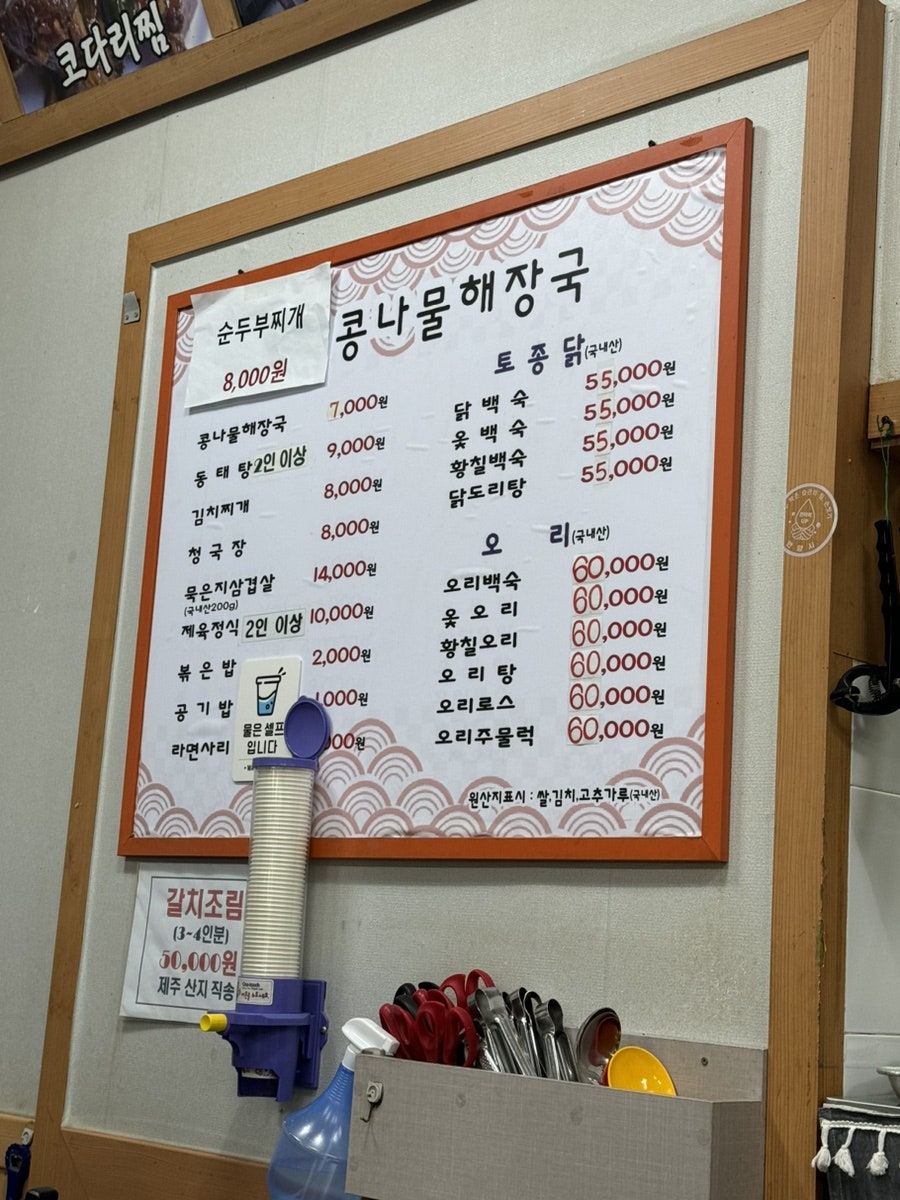 코다리찜
순두부찌개
8,000원
콩나물해장국
콩나물해장국 7,000원
동태탕 2인 이상 9,000원
김치찌개 8,000원
청국장 8,000원
묵은지삼겹살 14,000원
(국내산200g)
제육정식 2인 이상 10,000원
볶은밥 2,000원
공기밥 1,000원
라면사리
물은 셀프
입니다
토종닭(국내산)
닭백숙 55,000원
옻백숙 55,000원
황칠백숙 55,000원
닭도리탕 55,000원
오리(국내산)
오리백숙 60,000원
옻오리 60,000원
황칠오리 60,000원
오리탕 60,000원
오리로스 60,000원
오리주물럭 60,000원
원산지표시 : 쌀,김치,고추가루(국내산)
갈치조림
(3~4인분)
50,000원
제주 산지 직송